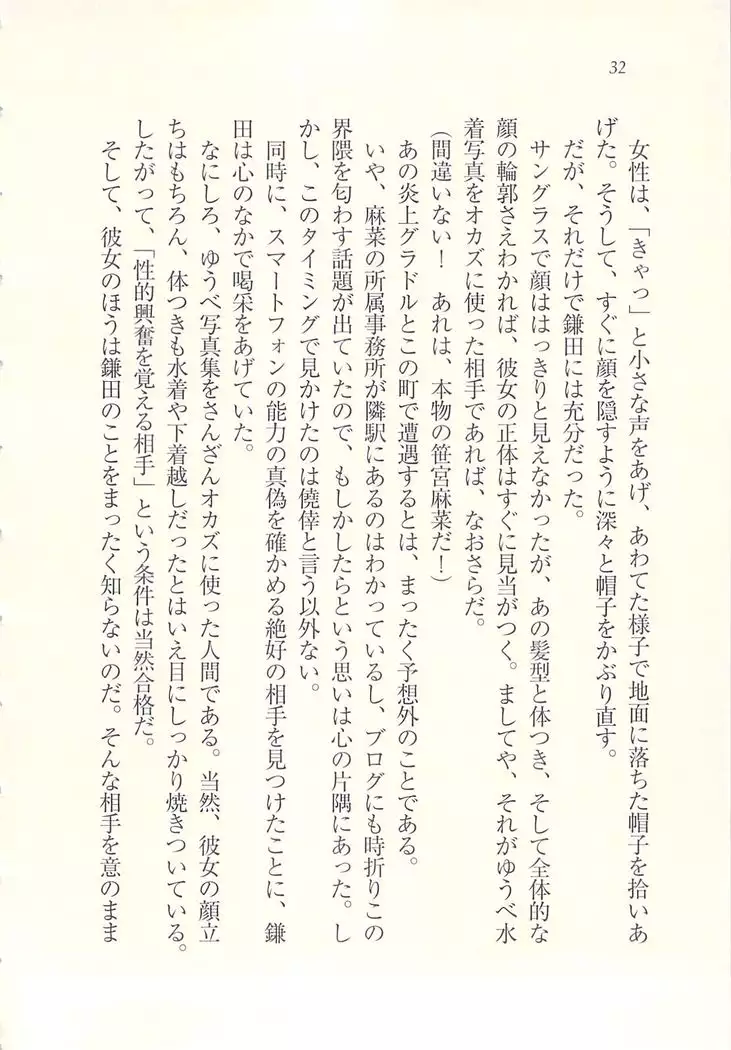 32
女性は、「きゃっ」と小さな声をあげ、あわてた様子で地面に落ちた帽子を拾いあ
げた。そうして、すぐに顔を隠すように深々と帽子をかぶり直す。
だが、それだけで鎌田には充分だった。
サングラスで顔ははっきりと見えなかったが、あの髪型と体つき、そして全体的な
顔の輪郭さえわかれば、彼女の正体はすぐに見当がつく。ましてや、それがゆうべ水
着写真をオカズに使った相手であれば、なおさらだ。
(間違いない！　あれは、本物の笹宮麻菜だ！)
あの炎上グラドルとこの町で遭遇するとは、まったく予想外のことである。
いや、麻菜の所属事務所が隣駅にあるのはわかっているし、ブログにも時折りこの
界隈を匂わす話題が出ていたので、もしかしたらという思いは心の片隅にあった。し
かし、このタイミングで見かけたのは僥倖と言う以外ない。
同時に、スマートフォンの能力の真偽を確かめる絶好の相手を見つけたことに、鎌
田は心のなかで喝采をあげていた。
なにしろ、ゆうべ写真集をさんざんオカズに使った人間である。当然、彼女の顔立
ちはもちろん、体つきも水着や下着越しだったとはいえ目にしっかり焼きついている。
したがって、「性的興奮を覚える相手」という条件は当然合格だ。
そして、彼女のほうは鎌田のことをまったく知らないのだ。そんな相手を意のまま